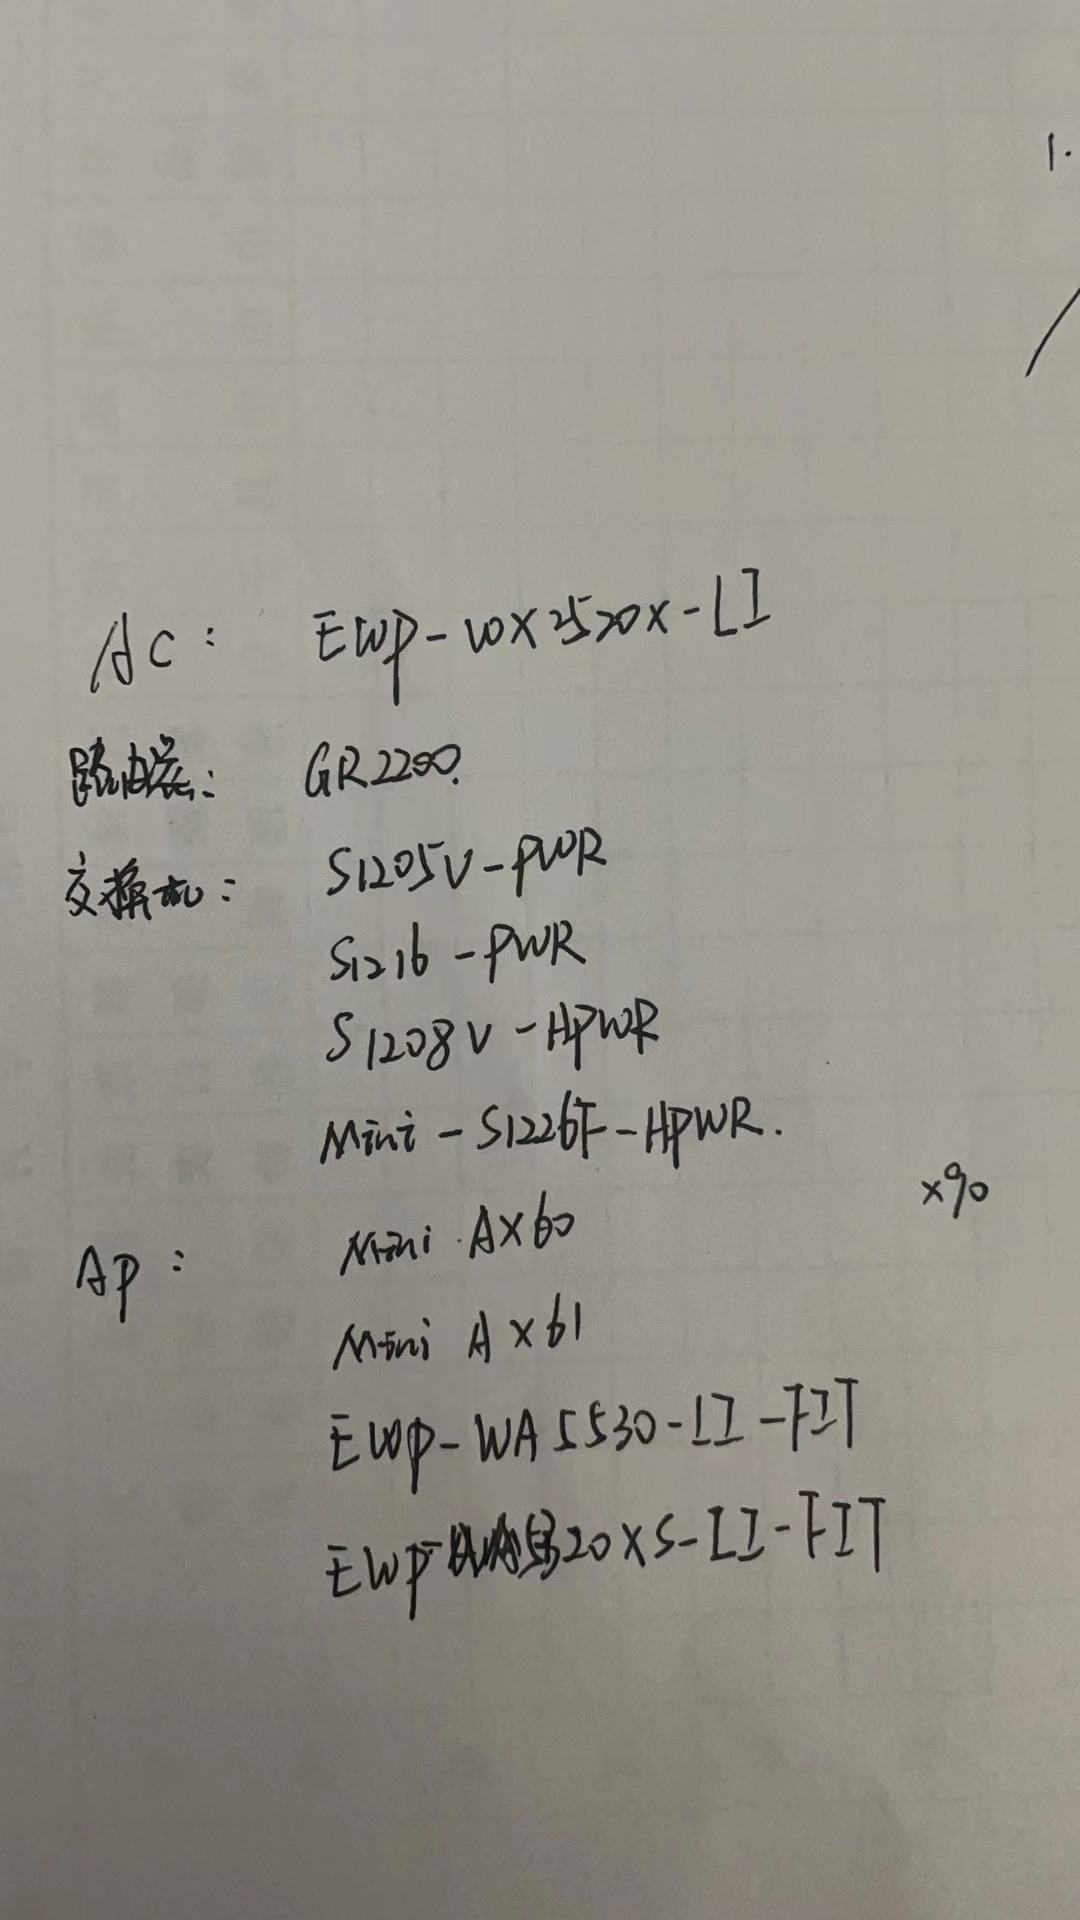 1.
AC: EWP-WX2520X-LI
路由器: GR2200.
交换机: S1205V-PWR
S1216-PWR
S1208V-HPWR
Mini-S1226F-HPWR.
×90
AP: Mini AX60
Mini AX61
EWP-WA5530-LI-FIT
EWP-WA5320XS-LI-FIT